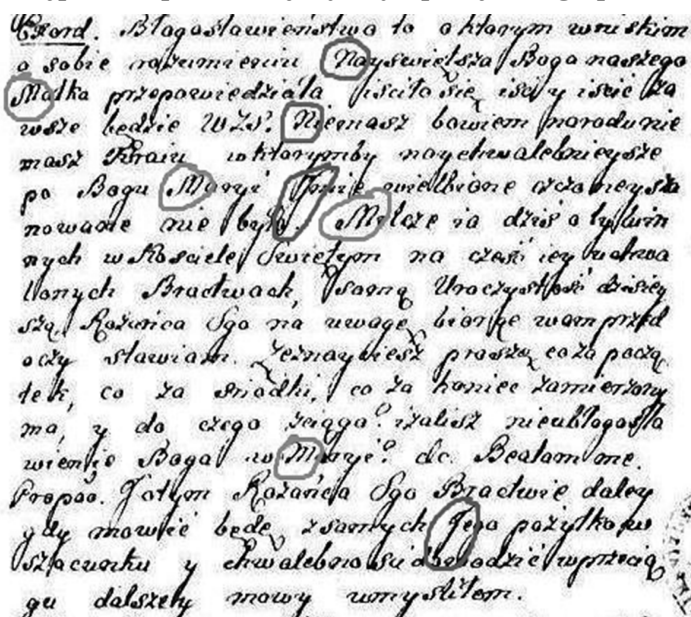 Exord. Błogosławieństwo to o ktorym wniskim
o sobie rozumieniu Nayswiętsza Boga naszego
Matka przepowiedziała iscilo się, isci y iscić za
wsze będzie WZS. Niemasz bowiem narodu nie
masz Kraiu w ktorymby naychwalebnieysze
po Bogu Maryi Jmie wielbione czczone y sza
nowane nie było. Milczę ia dziś o tylu in
nych w Kosciele Swiętym na cześć iey uchwa
lonych Bractwach, samą Uroczystość dzisiey
szą Rożańca Sgo na uwagę biorąc wam przed
oczy stawiam. proszę co za począ
tek, co za srzodki, co za koniec zamierzony
ma, y do czego sciąga? izalisz nieubłogosła
wienie Boga w Maryi? dc. Beatam me.
Propao. Jotym Rożańca Sgo Bractwie daley
gdy mowić będę, z samych Jego pożytkow
szacunku y chwalebności dowodzić w przecią
gu dalszey mowy umysliłem.